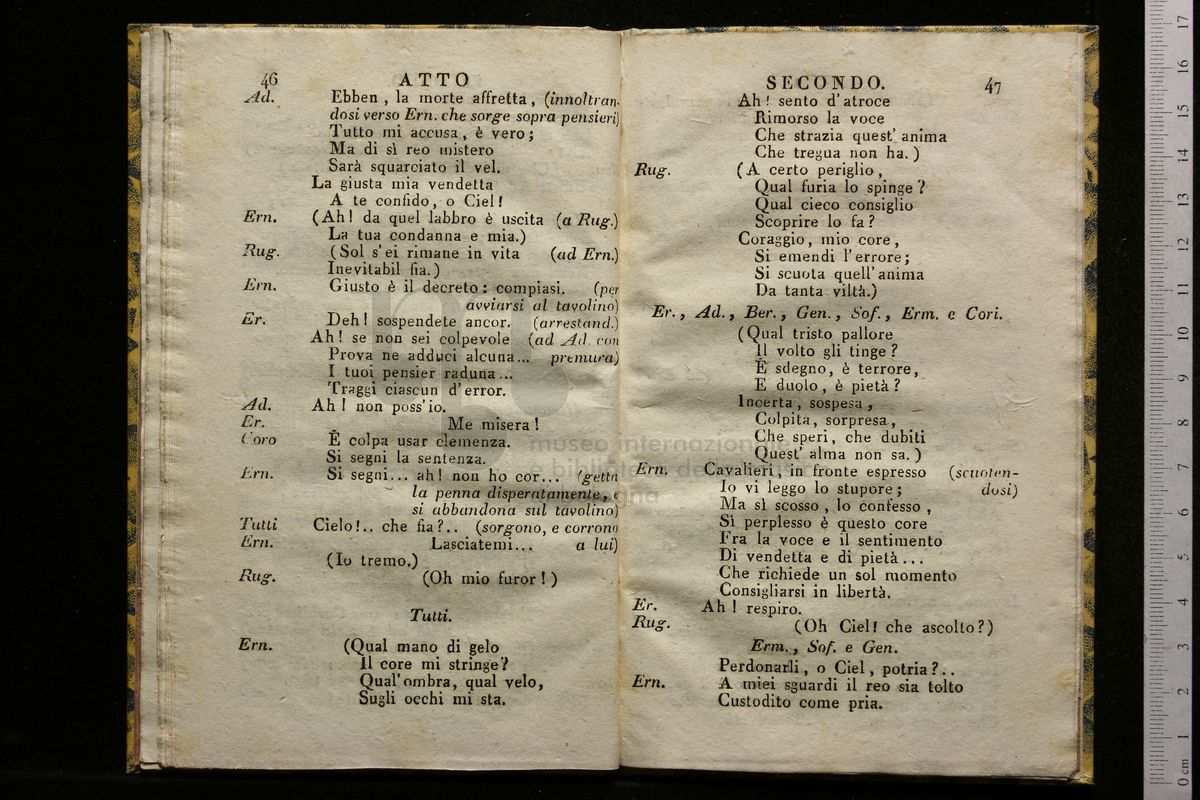 46 ATTO
Ad. Ebben, la morte affretta, (innoltran-
dosi verso Ern. che sorge sopra pensieri)
Tutto mi accusa, è vero;
Ma di sì reo mistero
Sarà squarciato il vel.
La giusta mia vendetta
A te confido, o Ciel!
Ern. (Ah! da quel labbro è uscita (a Rug.)
La tua condanna e mia.)
Rug. (Sol s'ei rimane in vita (ad Ern.)
Inevitabil fia.)
Ern. Giusto è il decreto: compiasi. (per
avviarsi al tavolino)
Er. Deh! sospendete ancor. (arrestand.)
Ah! se non sei colpevole (ad Ad. con
Prova ne adduci alcuna... premura)
I tuoi pensier raduna...
Traggi ciascun d'error.
Ad. Ah! non poss'io.
Er. Me misera!
Coro È colpa usar clemenza.
Si segni la sentenza.
Ern. Si segni... ah! non ho cor... (getta
la penna disperatamente, e
si abbandona sul tavolino)
Tutti Cielo!.. che fia?.. (sorgono, e corrono
Ern. Lasciatemi... a lui)
(Io tremo.)
Rug. (Oh mio furor!)
Tutti.
Ern. (Qual mano di gelo
Il core mi stringe?
Qual'ombra, qual velo,
Sugli occhi mi sta.
SECONDO. 47
Ah! sento d'atroce
Rimorso la voce
Che strazia quest'anima
Che tregua non ha.)
Rug. (A certo periglio,
Qual furia lo spinge?
Qual cieco consiglio
Scoprire lo fa?
Coraggio, mio core,
Si emendi l'errore;
Si scuota quell'anima
Da tanta viltà.)
Er., Ad., Ber., Gen., Sof., Erm. e Cori.
(Qual tristo pallore
Il volto gli tinge?
È sdegno, è terrore,
E duolo, è pietà?
Incerta, sospesa,
Colpita, sorpresa,
Che speri, che dubiti
Quest'alma non sa.)
Ern. Cavalieri, in fronte espresso (scuoten-
Io vi leggo lo stupore; dosi)
Ma sì scosso, lo confesso,
Sì perplesso è questo core
Fra la voce e il sentimento
Di vendetta e di pietà...
Che richiede un sol momento
Consigliarsi in libertà.
Er. Ah! respiro.
Rug. (Oh Ciel! che ascolto?)
Erm., Sof. e Gen.
Perdonarli, o Ciel, potria?..
Ern. A miei sguardi il reo sia tolto
Custodito come pria.
museo internazionale
e biblioteca della
0 cm 1 2 3 4 5 6 7 8 9 10 11 12 13 14 15 16 17